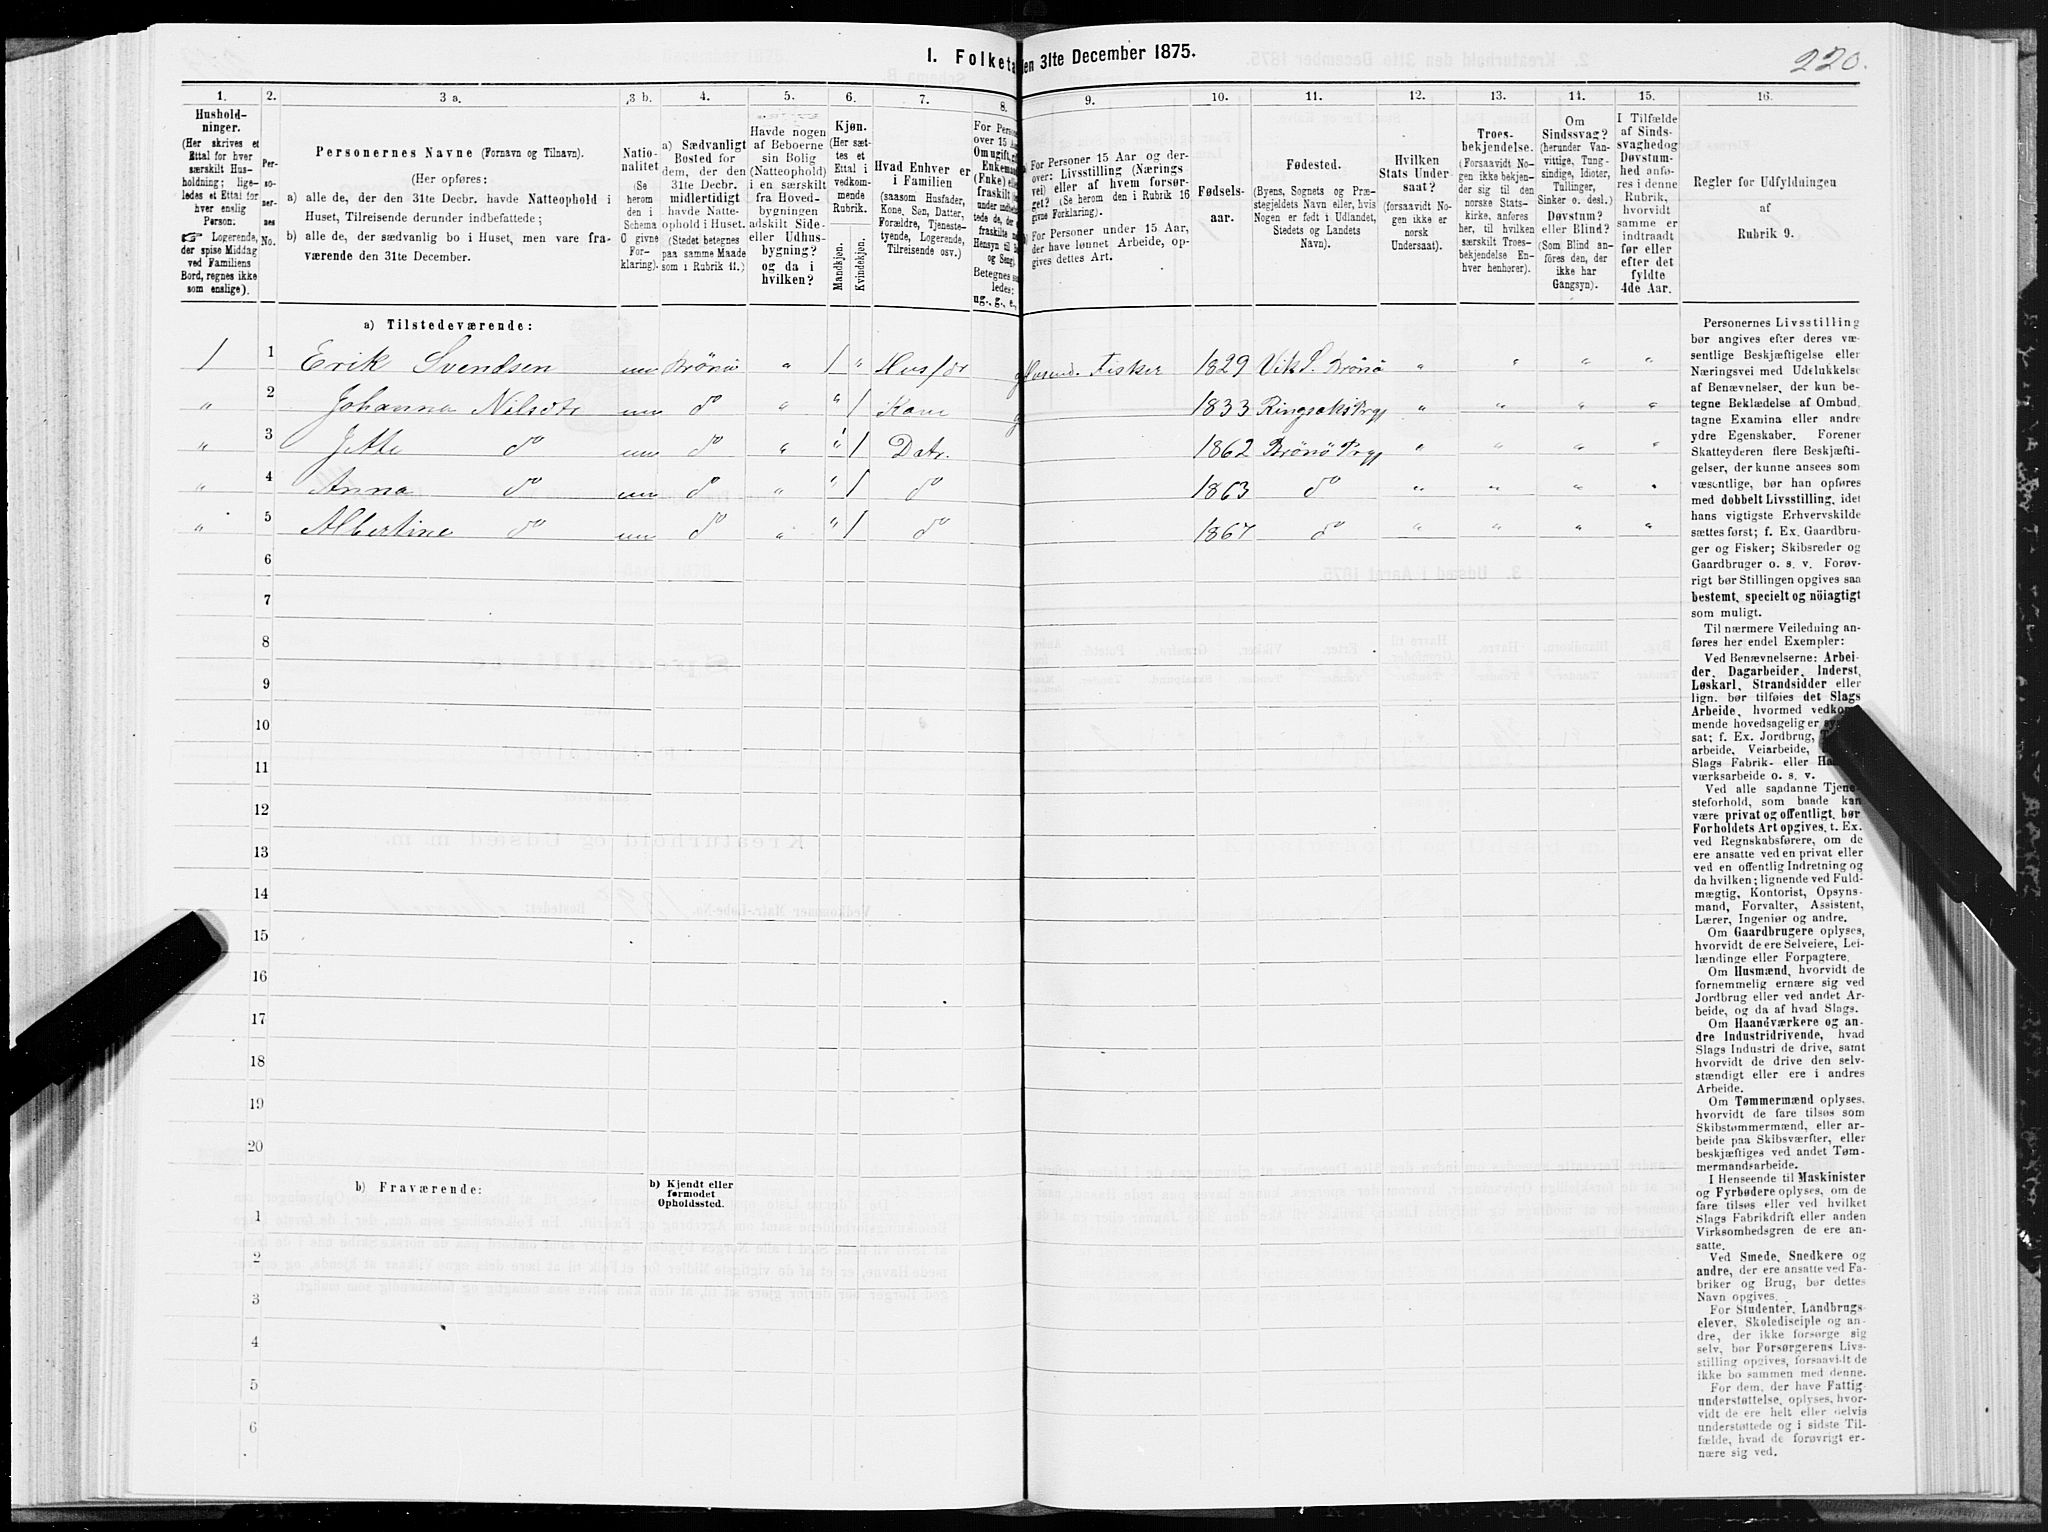 I. Folketa en 31te December 1875.
220.
1. 2. 3 a. 3 b. 4. 5. 6. 7. 8. 9. 10. 11. 12. 13. 14. 15. 16.
Hushold-
ninger.
(Her skrives et
Ettal for hver
særskilt Hus-
holdning; lige-
ledes et Ettal for
hver enslig
Person.
Logerende,
der spise Middag
ved Familiens
Bord, regnes ikke
som enslige).
Per-
so-
ner-
nes
No.
Personernes Navne (Fornavn og Tilnavn).
(Her opføres:
a) alle de, der den 31te Decbr. havde Natteophold i
Huset, Tilreisende derunder indbefattede;
b) alle de, der sædvanlig bo i Huset, men vare fra-
værende den 31te December.
Natio-
nalitet
(Se
herom
den i
Schema
C givne
For-
klaring).
a) Sædvanligt
Bosted for
dem, der den
31te Decbr.
midlertidigt
havde Natte-
ophold i Huset.
(Stedet betegnes
paa samme Maade
som i Rubrik 11.)
Havde nogen
af Beboerne
sin Bolig
(Natteophold)
i en særskilt
fra Hoved-
bygningen
adskilt Side-
eller Udhus-
bygning?
og da i
hvilken?
Kjøn.
(Her sæt-
tes et
Ettal i
vedkom-
mende
Rubrik.
Mandkjøn.
Kvindekjøn.
Hvad Enhver er
i Familien
(saasom Husfader,
Kone, Søn, Datter,
Forældre, Tjeneste-
tyende, Logerende,
Tilreisende osv.)
For Pers
over 15 A
Om ugift, gi
Enkeman
(Fnke) elle
fraskilt
under indbefa
tede de, der
fraskilte
Hensyn til
og Seng).
Betegnes sa
ledes:
ug., g., e.,
For Personer 15 Aar og der-
over: Livsstilling (Nærings
vei) eller af hvem forsør-
get? (Se herom den i Rubrik 16
givne Forklaring).
For Personer under 15 Aar,
der have lønnet Arbeide, op-
gives dettes Art.
Fødsels-
aar.
Fødested.
(Byens, Sognets og Præ-
stegjeldets Navn eller, hvis
Nogen er født i Udlandet,
Stedets og Landets
Navn).
Hvilken
Stats Under-
saat?
(forsaavidt No-
gen ikke er
norsk
Undersaat).
Troes-
bekjendelse.
(Forsaavidt No-
gen ikke bekjen-
der sig til den
norske Stats-
kirke, anføres
her, til hvilken
særskilt Troes-
bekjendelse En-
hver henhører).
Om
Sindssvag?
(herunder Van-
vittige, Tung-
sindige, Idioter,
Tullinger,
Sinker o. desl.)
Døvstum?
eller Blind?
(Som Blind an-
føres den, der
ikke har
Gangsyn).
I Tilfælde
af Sinds-
svaghed og
Døvstum-
hed anfø-
res i denne
Rubrik,
hvorvidt
samme er
indtraadt
før eller
efter det
fyldte
4de Aar.
Regler for Udfyldningen
af
Rubrik 9.
a) Tilstedeværende:
1 1 Erik Svendsen nn Brönö " 1 " Husfdr g Husmd. Fisker 1829 Vik S. Brönö " " " "
" 2 Johanna Nilsdtr nn do " " 1 Kone g 1833 Ringsaks Prgj " " " "
" 3 Jette do nn do " " 1 Datr. 1862 Brönö Prgj " " " "
" 4 Anna do nn do " " 1 do 1863 do " " " "
" 5 Albertine do nn do " " 1 do 1867 do " " " "
6
7
8
9
10
11
12
13
14
15
16
17
18
19
20
b) Fraværende:
b) Kjendt eller
formodet
Opholdssted.
1
2
3
4
5
6
Personernes Livsstilling
bør angives efter deres væ-
sentlige Beskjæftigelse eller
Næringsvei med Udelukkelse
af Benævnelser, der kun be-
tegne Beklædelse af Ombud,
tagne Examina eller andre
ydre Egenskaber. Forener
Skatteyderen flere Beskjæfti-
gelser, der kunne ansees som
væsentlige, bør han opføres
med dobbelt Livsstilling, idet
hans vigtigste Erhvervskilde
sættes først; f. Ex. Gaardbru-
ger og Fisker; Skibsreder og
Gaardbruger o. s. v. Forøv-
rigt bør Stillingen opgives saa
bestemt, specielt og nöiagtigt
som muligt.
Til nærmere Veiledning an-
føres her endel Exempler:
Ved Benævnelserne: Arbei-
der, Dagarbeider, Inderst,
Løskarl, Strandsidder eller
lign. bør tilføies det Slags
Arbeide, hvormed vedkom-
mende hovedsagelig er sys
sat; f. Ex. Jordbrug, T
arbeide, Veiarbeide,
Slags Fabrik- eller Ha
værksarbeide o. s. v.
Ved alle saadanne Tjene-
steforhold, som baade kan
være privat og offentligt, bør
Forholdets Art opgives, t. Ex.
ved Regnskabsførere, om de
ere ansatte ved en privat eller
ved en offentlig Indretning og
da hvilken; lignende ved Fuld-
mægtig, Kontorist, Opsyns-
mand, Forvalter, Assistent,
Lærer, Ingeniør og andre.
Om Gaardbrugere oplyses,
hvorvidt de ere Selveiere, Lei-
lændinge eller Forpagtere.
Om Husmænd, hvorvidt de
fornemmelig ernære sig ved
Jordbrug eller ved andet Ar-
beide, og da af hvad Slags.
Om Haandværkere og an-
dre Industridrivende, hvad
Slags Industri de drive, samt
hvorvidt de drive den selv-
stændigt eller ere i andres
Arbeide.
Om Tømmermænd oplyses,
hvorvidt de fare tilsøs som
Skibstømmermænd, eller ar-
beide paa Skibsværfter, eller
beskjæftiges ved andet Tøm-
mermandsarbeide.
I Henseende til Maskinister
og Fyrbødere oplyses, om de
fare tilsøs eller ved hvilket
Slags Fabrikdrift eller anden
Virksomhedsgren de ere an-
satte.
Ved Smede, Snedkere og
andre, der ere ansatte ved Fa-
briker og Brug, bør dettes
Navn opgives.
For Studenter, Landbrugs-
elever, Skoledisciple og an-
dre, der ikke forsørge sig
selv, bør Forsørgerens Livs-
stilling opgives, forsaavidt de
ikke bo sammen med denne.
For dem, der have Fattig-
understøttelse, oplyses, hvor-
vidt de ere helt eller delvis
understøttede og i sidste Til-
fælde, hvad de forøvrigt er-
nære sig ved.